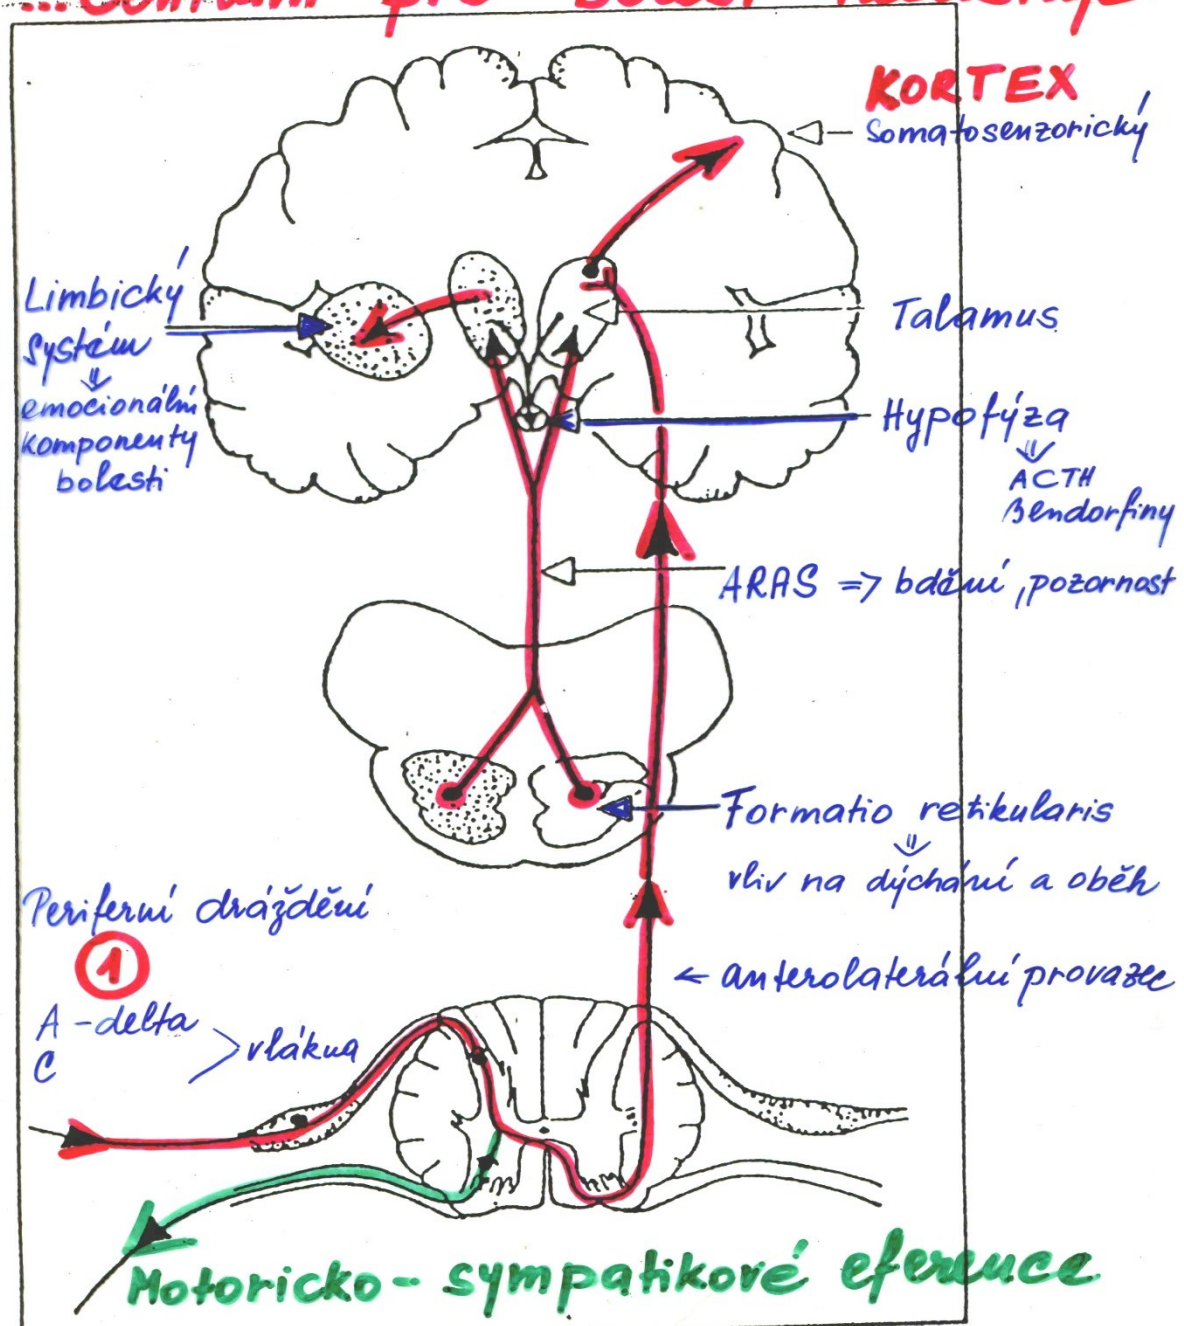 pro
KORTEX
Somatosenzorický
Limbický
systém
⇓
emocionální
komponenty
bolesti
Talamus
Hypofýza
⇓
ACTH
βendorfiny
ARAS => bdění, pozornost
Formatio retikularis
⇓
vliv na dýchání a oběh
Periferní dráždění
1
← anterolaterální provazec
A-delta
C
vlákna
Motoricko-sympatikové eference